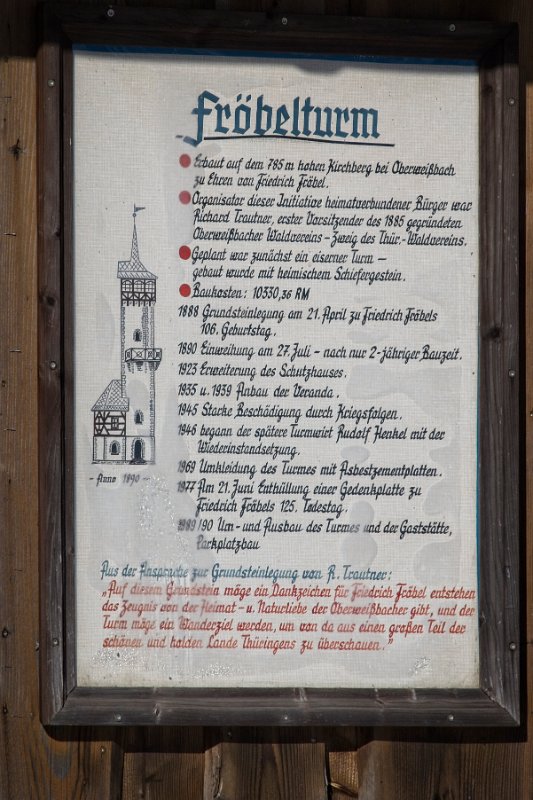 Fröbelturm
Erbaut auf dem 785 m hohen Kirchberg bei Oberweißbach
zu Ehren von Friedrich Fröbel.
Organisator dieser Initiative heimatverbundener Bürger war
Richard Trautner, erster Vorsitzender des 1885 gegründeten
Oberweißbacher Waldvereins - Zweig des Thür.-Waldvereins.
Geplant war zunächst ein eiserner Turm –
gebaut wurde mit heimischem Schiefergestein.
Baukosten: 10330,36 RM
1888 Grundsteinlegung am 21. April zu Friedrich Fröbels
106. Geburtstag.
1890 Einweihung am 27. Juli - nach nur 2-jähriger Bauzeit.
1923 Erweiterung des Schutzhauses.
1935 u. 1939 Anbau der Veranda.
1945 Starke Beschädigung durch Kriegsfolgen.
1946 begann der spätere Turmwirt Rudolf Henkel mit der
Wiederinstandsetzung.
1969 Umkleidung des Turmes mit Asbestzementplatten.
1977 Am 21. Juni Enthüllung einer Gedenkplatte zu
Friedrich Fröbels 125. Todestag.
1989/90 Um- und Ausbau des Turmes und der Gaststätte,
Parkplatzbau
- Anno 1890 -
Aus der Ansprache zur Grundsteinlegung von R. Trautner:
„Auf diesem Grundstein möge ein Dankzeichen für Friedrich Fröbel entstehen
das Zeugnis von der Heimat- u. Naturliebe der Oberweißbacher gibt, und der
Turm möge ein Wanderziel werden, um von da aus einen großen Teil der
schönen und holden Lande Thüringens zu überschauen."